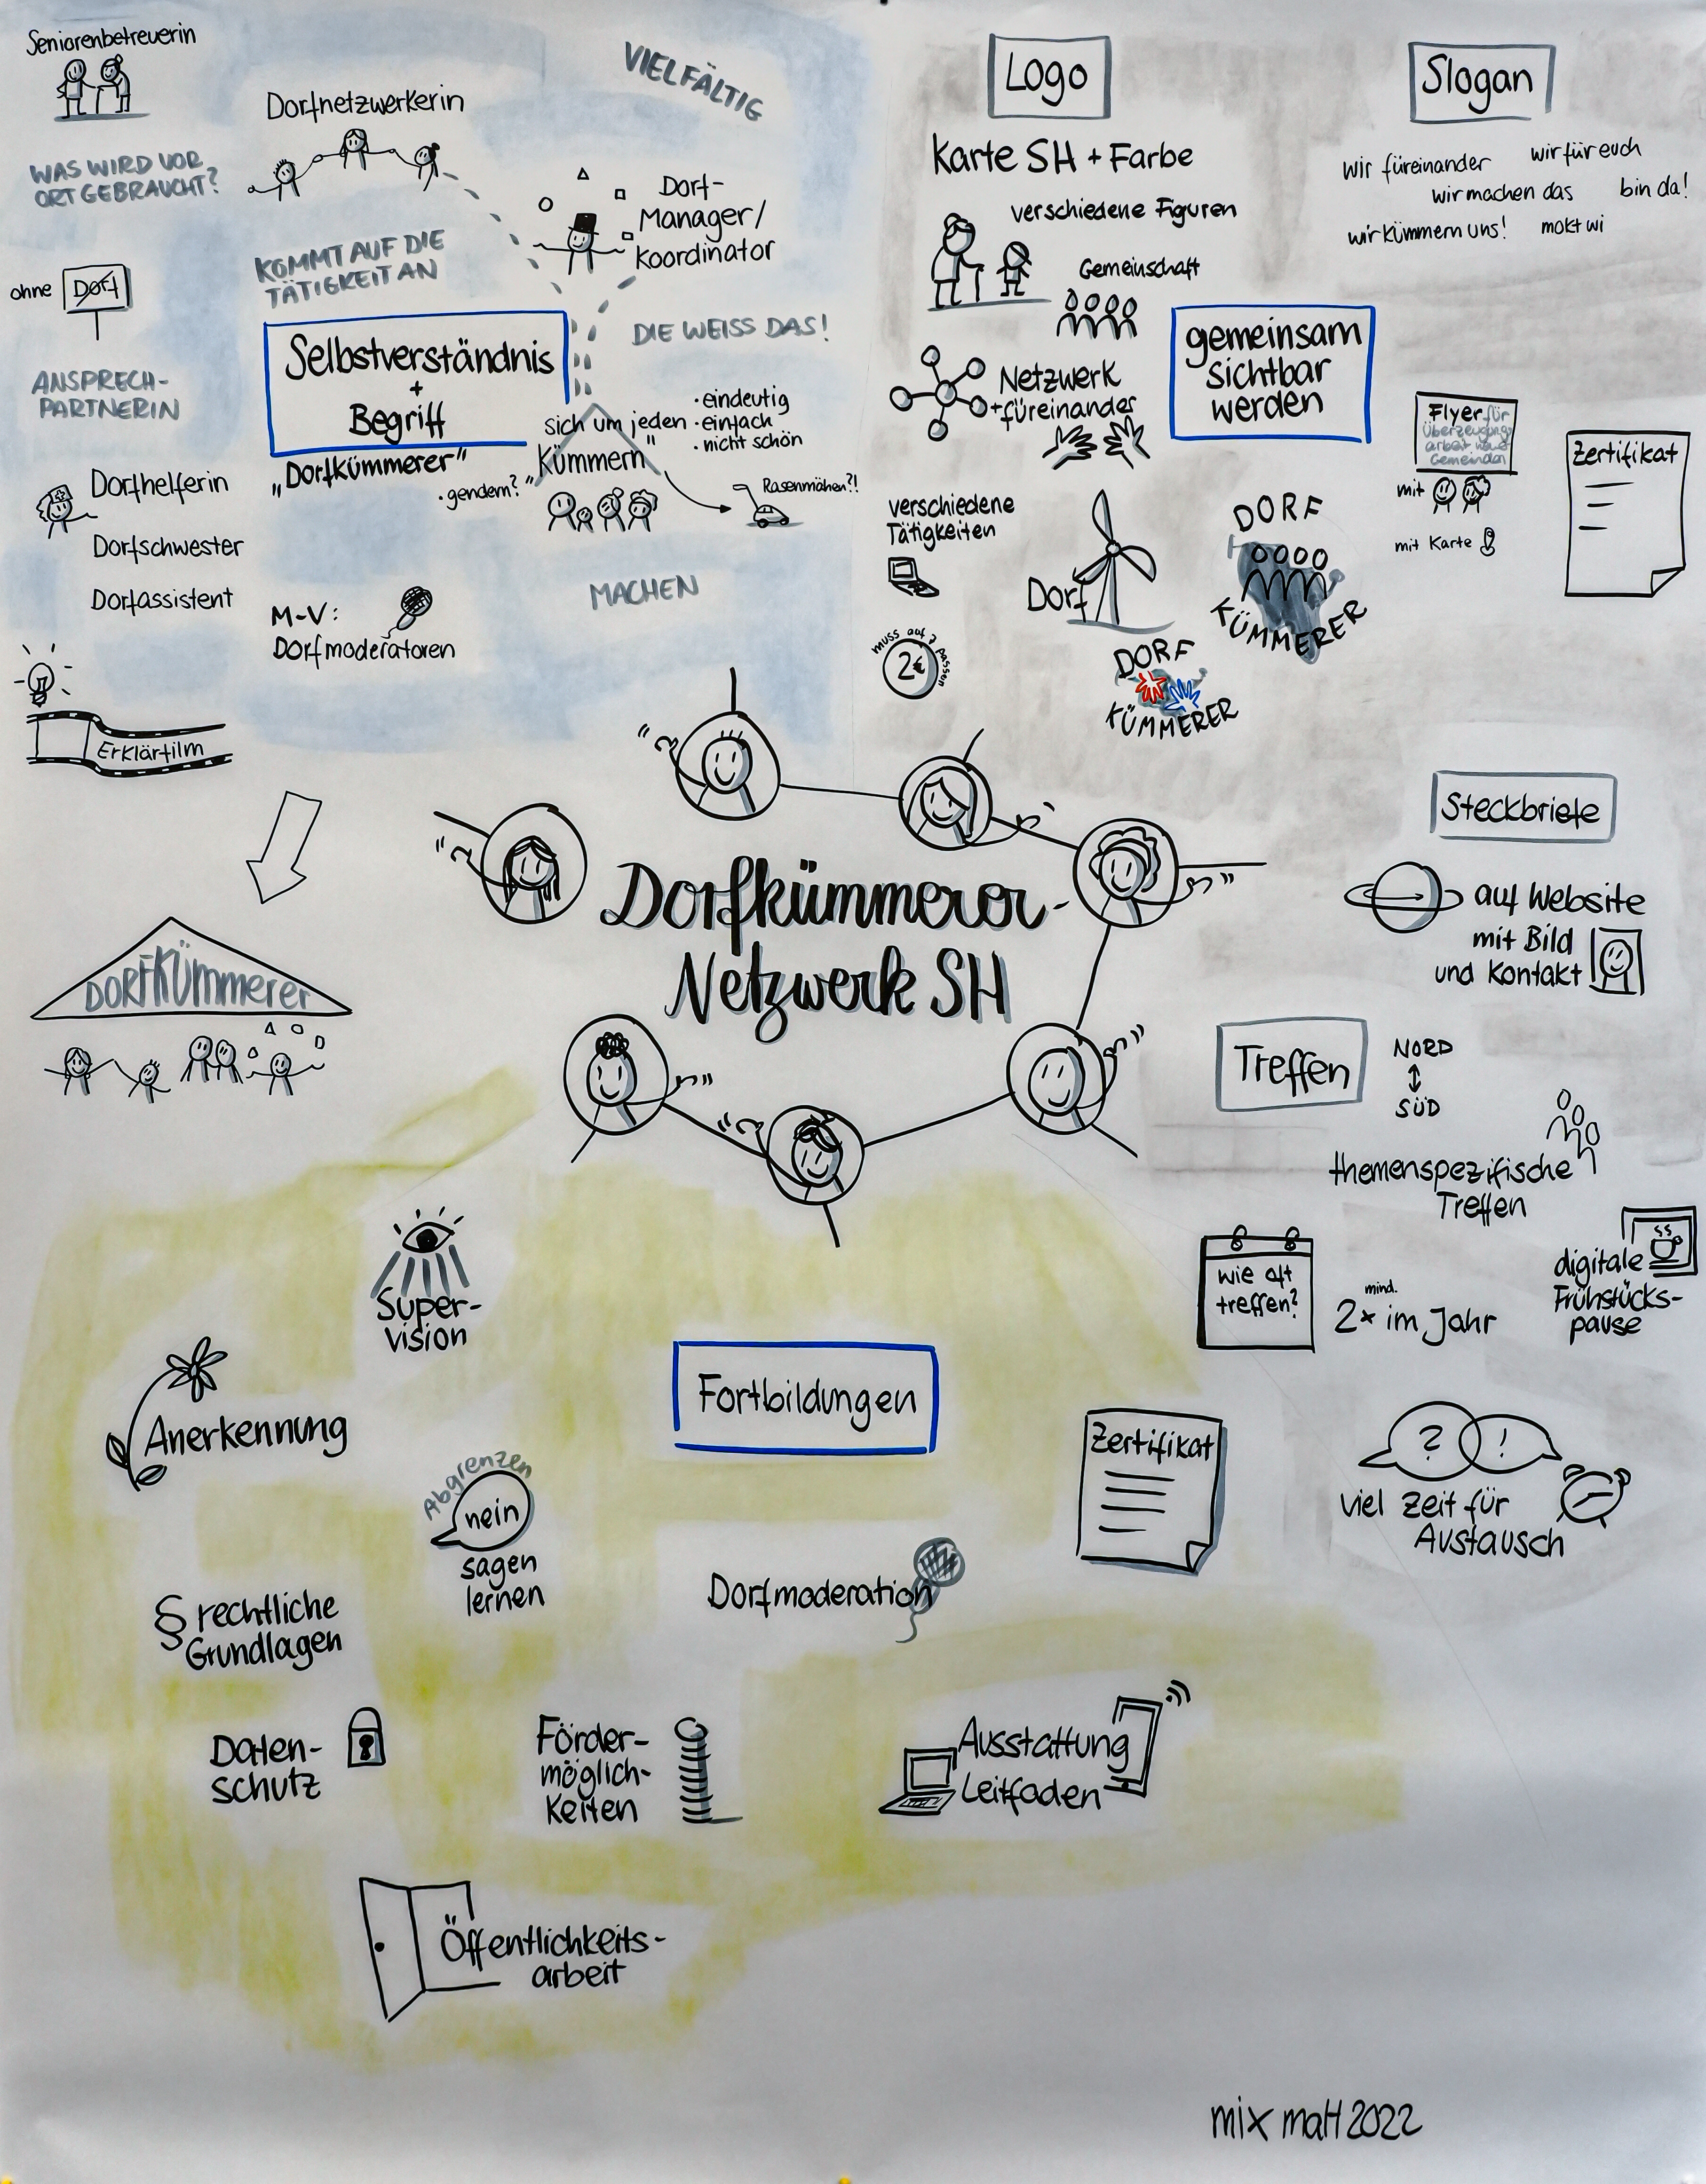 Seniorenbetreuerin
Dorfnetzwerkerin
VIELFÄLTIG
WAS WIRD VOR
ORT GEBRAUCHT?
Dorf-
Manager/
Koordinator
KOMMT AUF DIE
TÄTIGKEIT AN
ohne Dorf
DIE WEISS DAS!
Selbstverständnis
+
Begriff
ANSPRECH-
PARTNERIN
„Dorfkümmerer"
· gendern?
sich um jeden
"Kümmern"
· eindeutig
· einfach
· nicht schön
Rasenmähen?!
Dorfhelferin
Dorfschwester
Dorfassistent
M-V:
Dorfmoderatoren
MACHEN
Erklärfilm
DORFKümmerer
Logo
Karte SH + Farbe
verschiedene Figuren
Gemeinschaft
Netzwerk
+füreinander
verschiedene
Tätigkeiten
muss auf 2 passen
2€
Dorf
DORF
KÜMMERER
DORF
KÜMMERER
gemeinsam
sichtbar
werden
Slogan
wir füreinander
wir für euch
wir machen das
bin da!
wir kümmern uns!
mokt wi
Flyer für
Überzeugungs
arbeit
Gemeinden
mit
mit Karte
Zertifikat
Dorfkümmerer-
Netzwerk SH
Steckbriefe
auf Website
mit Bild
und Kontakt
Treffen
NORD
SÜD
themenspezifische
Treffen
wie oft
treffen?
mind.
2x im Jahr
digitale
Frühstücks-
pause
? !
viel Zeit für
Austausch
Super-
vision
Fortbildungen
Anerkennung
Abgrenzen
nein
sagen
lernen
Zertifikat
Dorfmoderation
§ rechtliche
Grundlagen
Daten-
schutz
Förder-
möglich-
keiten
Ausstattung
Leitfaden
Öffentlichkeits-
arbeit
mix maH 2022